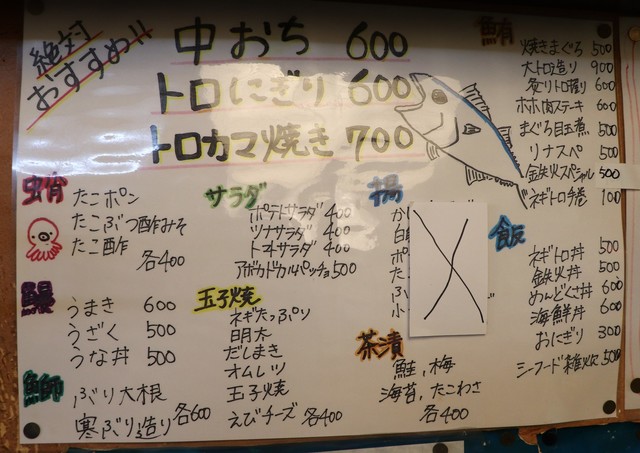 絶対
おすすめ!!
中おち 600
トロにぎり 600
トロカマ焼き 700
鮪
焼きまぐろ 500
大トロ造り 900
炙りトロ握り 600
ホホ肉ステーキ 600
まぐろ目玉煮 500
ツナスペ 500
鉄火スペシャル 500
ネギトロ手巻 100
たこポン
たこぶつ酢みそ
たこ酢
各400
サラダ
ポテトサラダ 400
ツナサラダ 400
トマトサラダ 400
アボカドカルパッチョ 500
揚
飯
ネギトロ丼 500
鉄火丼 500
めんどくさ丼 600
海鮮丼 600
おにぎり 300
シーフード雑炊 500
鰻
うまき 600
うざく 500
うな丼 500
玉子焼
ネギたっぷり
明太
だしまき
オムレツ
玉子焼
えびチーズ 各400
茶漬
鮭,梅
海苔,たこわさ
各400
鰤
ぶり大根
寒ぶり造り 各600